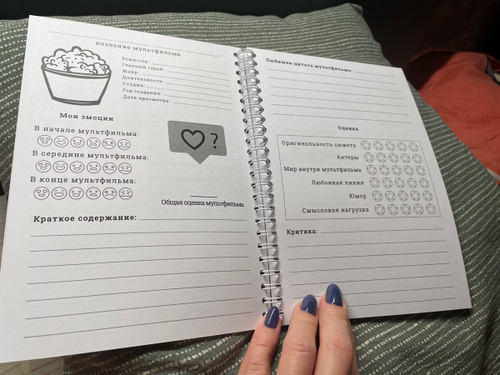 название мультфильма
Режиссер:
Главный герой:
Жанр:
Длительность:
Студия:
Год создания:
Дата просмотра:
Мои эмоции
В начале мультфильма:
В середине мультфильма:
В конце мультфильма:
?
Общая оценка мультфильма
Краткое содержание:
Любимая цитата мультфильма:
Оценка
Оригинальность сюжета
Актеры
Мир внутри мультфильма
Любовная линия
Юмор
Смысловая нагрузка
Критика: